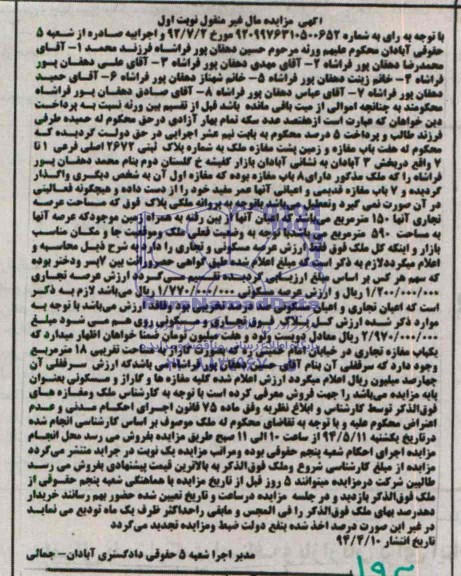 آگهی مزایده مال غیر منقول نوبت اول
با توجه به رای به شماره ۹۲۰۹۹۷۶۳۱۰۵۰۰۶۵۲ مورخ ۹۲/۷/۲ و اجراییه صادره از شعبه ۵
حقوقی آبادان محکوم علیهم ورثه مرحوم حسین دهقان پور فراشاه فرزند محمد ۱- آقای
محمدرضا دهقان پور فراشاه ۲- آقای مهدی دهقان پور فراشاه ۳- آقای علی دهقان پور
فراشاه ۴- خانم زینت دهقان پور فراشاه ۵- خانم شهناز دهقان پور فراشاه ۶- آقای حمید
دهقان پور فراشاه ۷- آقای عباس دهقان پور فراشاه ۸- آقای صادق دهقان پور فراشاه
محکومند به چنانچه اموالی از میت باقی مانده باشد قبل از تقسیم بین ورثه نسبت به پرداخت
دین خواهان که عبارت است ازهفتصد عدد سکه تمام بهار آزادی درحق محکوم له حمیده طرفی
فرزند طالب و پرداخت ۵ درصد محکوم به بابت نیم عشر اجرایی در حق دولت گردیده که
محکوم له هفت باب مغازه و زمین پشت مغازه ملک به شماره پلاک ثبتی ۲۶۷۲ اصلی فرعی ۱ تا
۷ واقع دربخش ۳ آبادان به نشانی آبادان بازار کفیشه خ گلستان دوم بنام محمد دهقان پور
فراشاه را که ملک مذکور دارای۸ باب مغازه بوده که مغازه اول آن به شخص دیگری واگذار
گردیده و ۷ باب مغازه قدیمی و اعیانی آنها عمر مفید خود را از دست داده و هیچگونه فعالیتی
در آن صورت نمی گیرد وتعطیل می باشد باتوجه به پروانه ملکی پلاک فوق که مساحت عرصه
تجاری آنها ۱۵۰ مترمربع می باشد که اعیان آنها از بین رفته به همراه زمین موجودکه عرصه آنها
به مساحت ۵۹۰ مترمربع می باشدبا توجه به وضعیت فعلی ملک موقعیت جا و مکان مناسب
بازار و اینکه کل ملک فوق فقط ارزش عرصه مسکونی و تجاری را دارد به شرح ذیل محاسبه و
اعلام میگرددلازم به ذکر است که مبلغ اعلام شده طبق گواهی حصروراثت بین ۷پسر ودختر بوده
که سهم هر کس بر اساس مبلغ ارزیابی گردیده تقسیم میگردد ارزش عرصه تجاری
۱/۲۰۰/۰۰۰/۰۰۰ ریال و ارزش عرصه مسکونی ۱/۷۷۰/۰۰۰/۰۰۰ ریال می باشد لازم به ذکر
است که اعیان تجاری و اعیان مسکونی صد درصد تخریبی بود وفاقد ارزش می باشد با توجه به
موارد ذکر شده ارزش کل پلاک فوق تجاری و مسکونی روی هم می شود مبلغ
۲/۹۷۰/۰۰۰/۰۰۰ ریال معادل دویست و نود و هفت میلیون تومان ضمنا خواهان اظهار میدارد که
یکباب مغازه تجاری در خیابان امام خمینی ره که بصورت گاراژ به مساحت تقریبی ۱۸ مترمربع
وجود دارد که سرقفلی آن بنام آقای حسین دهقان پور فراشاه می باشدکه ارزش سرقفلی آن
چهارصد میلیون ریال اعلام میگردد ارزش اعلام شده کلیه مغازه ها و گاراژ و مسکونی بعنوان
پایه مزایده می‌باشد را جهت فروش معرفی کرده است با توجه به کارشناس ملک ومغازه های
فوق‌الذکر توسط کارشناس و ابلاغ نظریه وفق ماده ۷۵ قانون اجرای احکام مدنی و عدم
اعتراض محکوم علیه و با توجه به تقاضای محکوم له ملک موصوف بر اساس کارشناسی انجام شده
درتاریخ یکشنبه ۹۴/۵/۱۱ از ساعت ۱۰ الی ۱۱ صبح طریق مزایده بفروش می رسد محل انجام
مزایده اجرای احکام شعبه پنجم حقوقی بوده ومراتب مزایده یک نوبت در جراید منتشر می‌گردد
مزایده از مبلغ کارشناسی شروع وملک فوق‌الذکر به بالاترین قیمت پیشنهادی بفروش می رسد
طالبین شرکت درمزایده میتوانند ۵ روز قبل از تاریخ مزایده با هماهنگی شعبه پنجم حقوقی از
ملک فوق‌الذکر بازدید و در جلسه مزایده درساعت و تاریخ تعیین شده حضور بهم رسانند خریدار
دهدرصد بهای ملک فوق‌الذکر را فی المجلس و مابقی راحداکثر ظرف یک ماه تودیع می نماید
در غیر این صورت درصد اخذ شده بنفع دولت ضبط ومزایده تجدید می‌گردد
تاریخ انتشار ۹۴/۴/۱۰
مدیر اجرا شعبه ۵ حقوقی دادگستری آبادان- جمالی